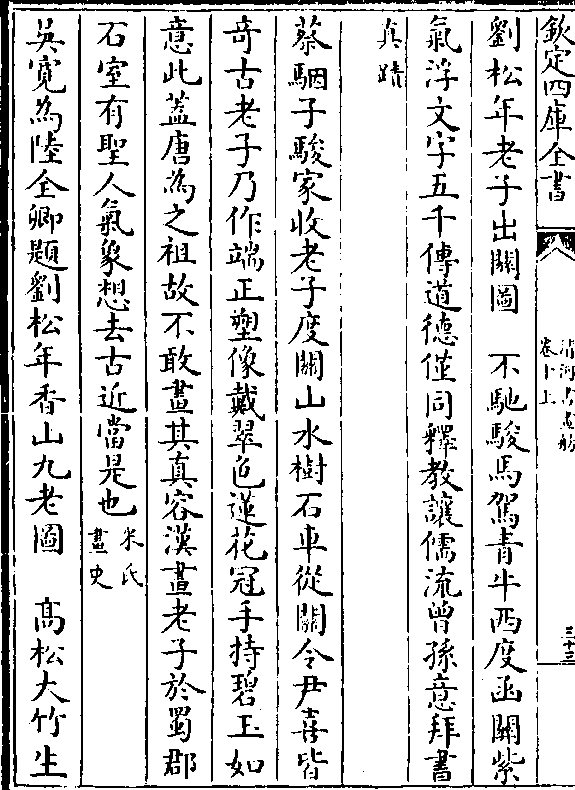 欽定四庫全書
清河書畫舫
卷十上
三十三
劉松年老子出關圖　不馳駿馬駕青牛西度函關紫
氣浮文字五千傳道德僅同釋教讓儒流曾孫意拜書
真蹟
蔡駰子駿家收老子度關山水樹石車從關令尹喜皆
奇古老子乃作端正塑像戴翠色蓮花冠手持碧玉如
意此蓋唐為之祖故不敢畫其真容漢畫老子於蜀郡
石室有聖人氣象想去古近當是也米氏
畫史
吳寛為陸全卿題劉松年香山九老圖　髙松大竹生